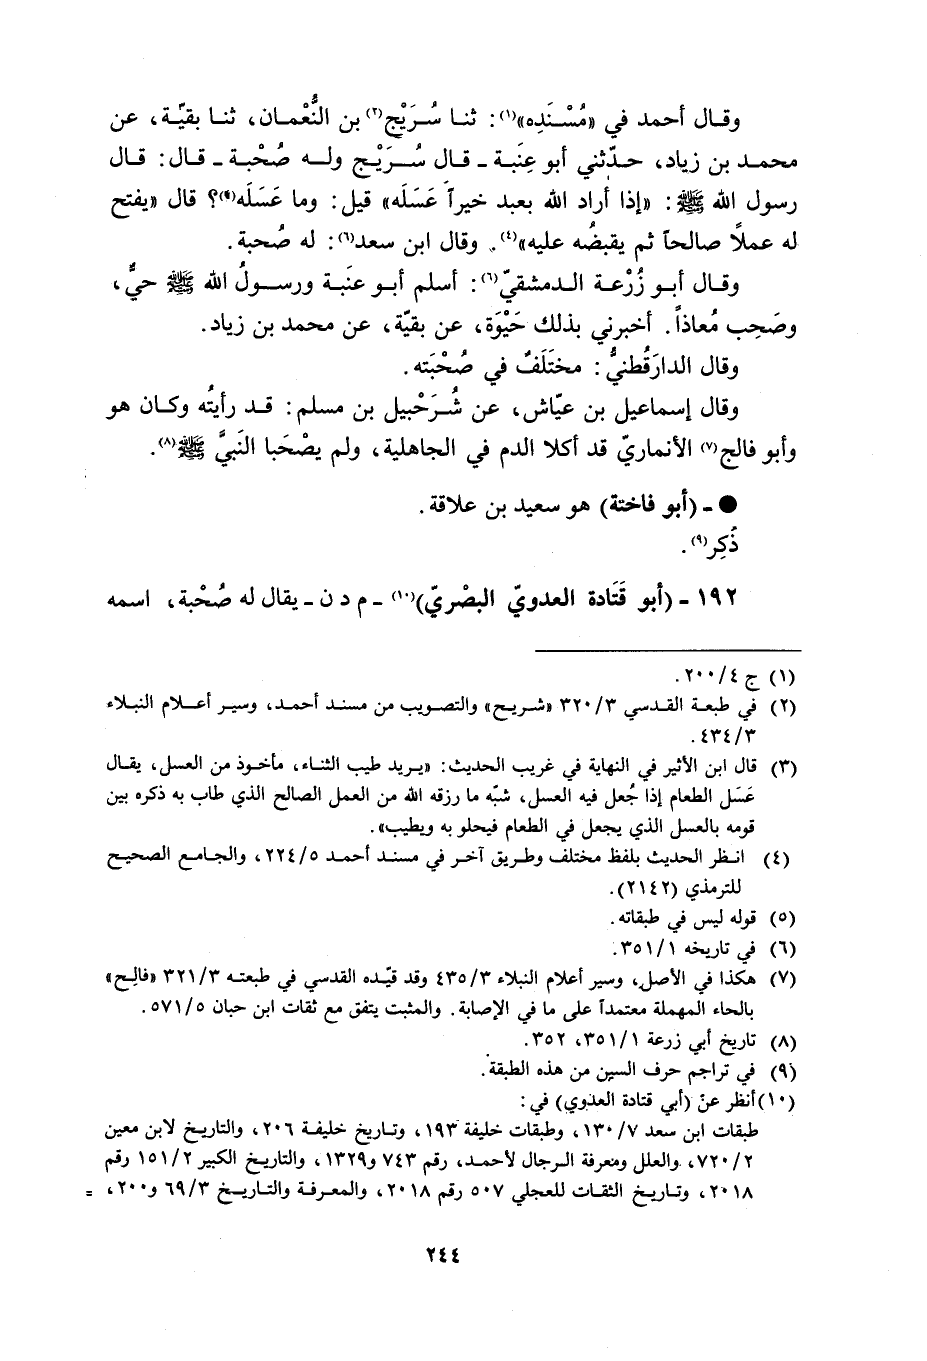 وقال أحمد في «مُسْنَدِه»(١): ثنا سُرَيْج(٢) بن النُّعْمان، ثنا بقيّة، عن
محمد بن زياد، حدّثني أبو عِنَبة ـ قال سُرَيْج وله صُحْبة ـ قال: قال
رسول الله ﷺ: «إذا أراد الله بعبد خيراً عَسَلَه» قيل: وما عَسَلَه(٣)؟ قال «يفتح
له عملاً صالحاً ثم يقبضُه عليه»(٤). وقال ابن سعد(٦): له صُحبة.
وقال أبو زُرْعة الدمشقيّ(٦): أسلم أبو عنَبة ورسولُ الله ﷺ حيٌّ،
وصَحِب مُعاذاً. أخبرني بذلك حَيْوَة، عن بقيّة، عن محمد بن زياد.
وقال الدارَقُطنيُّ: مختَلَفٌ في صُحْبَته.
وقال إسماعيل بن عيّاش، عن شُرَحْبيل بن مسلم: قد رأيتُه وكان هو
وأبو فالج(٧) الأنماريّ قد أكلا الدم في الجاهلية، ولم يصْحَبا النَبيَّ ﷺ(٨).
● ـ (أبو فاختة) هو سعيد بن علاقة.
ذُكِر(٩).
١٩٢ ـ (أبو قَتَادة العدويّ البصْريّ)(١٠) ـ م د ن ـ يقال له صُحْبة، اسمه
(١) ج ٤/٢٠٠.
(٢) في طبعة القدسي ٣/٣٢٠ «شريح» والتصويب من مسند أحمد، وسير أعلام النبلاء
٣/٤٣٤.
(٣) قال ابن الأثير في النهاية في غريب الحديث: «يريد طيب الثناء، مأخوذ من العسل، يقال
عَسَل الطعام إذا جُعل فيه العسل، شبّه ما رزقه الله من العمل الصالح الذي طاب به ذكره بين
قومه بالعسل الذي يجعل في الطعام فيحلو به ويطيب».
(٤) انظر الحديث بلفظ مختلف وطريق آخر في مسند أحمد ٥/٢٢٤، والجامع الصحيح
للترمذي (٢١٤٢).
(٥) قوله ليس في طبقاته.
(٦) في تاريخه ١/٣٥١.
(٧) هكذا في الأصل، وسير أعلام النبلاء ٣/٤٣٥ وقد قيّده القدسي في طبعته ٣/٣٢١ «فالح»
بالحاء المهملة معتمداً على ما في الإصابة. والمثبت يتفق مع ثقات ابن حبان ٥/٥٧١.
(٨) تاريخ أبي زرعة ١/٣٥١، ٣٥٢.
(٩) في تراجم حرف السين من هذه الطبقة.
(١٠) أنظر عن (أبي قتادة العدوي) في:
طبقات ابن سعد ٧/١٣٠، وطبقات خليفة ١٩٣، وتاريخ خليفة ٢٠٦، والتاريخ لابن معين
٢/٧٢٠، والعلل ومعرفة الرجال لأحمد، رقم ٧٤٣ و١٣٢٩، والتاريخ الكبير ٢/١٥١ رقم
٢٠١٨، وتاريخ الثقات للعجلي ٥٠٧ رقم ٢٠١٨، والمعرفة والتاريخ ٣/٦٩ و٢٠٠، =
٢٤٤